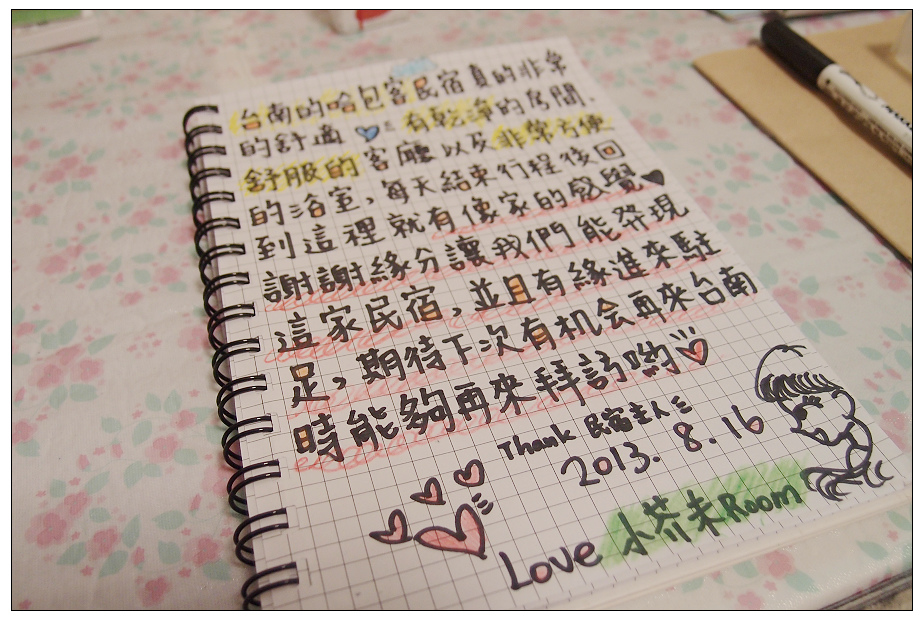 台南的哈包客民宿真的非常
的舒適 有乾淨的房間、
舒服的客廳以及非常方便
的浴室，每天結束行程後回
到這裡就有像家的感覺
謝謝緣分讓我們能發現
這家民宿，並且有緣進來駐
足，期待下次有机会再來台南
時能夠再來拜訪喲
Thank 民宿主人
2013. 8. 16
Love 小芥末Room